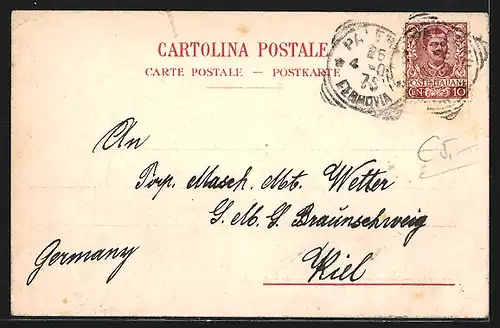 CARTOLINA POSTALE
CARTE POSTALE — POSTKARTE
POSTE ITALIANE
CENT. 10
FERROVIA
An
Torp. Masch. Mt. Wetter
S. M. S. Braunschweig
Kiel
Germany
€5,-